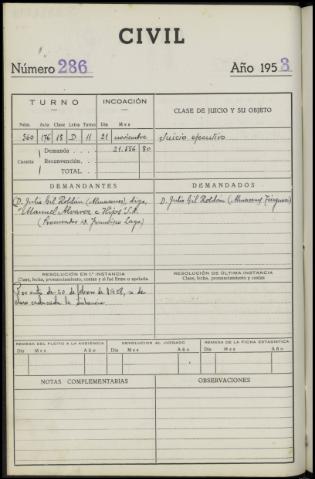 CIVIL
Número 286 Año 1953
TURNO INCOACIÓN CLASE DE JUICIO Y SU OBJETO
Núm. Auto Clase Letra Tomo Día Mes Año
560 176 18 D. 11 21 noviembre Juicio ejecutivo
Cuantía Demanda . . . 21.686 80
Reconvención. . .
TOTAL. . .
DEMANDANTES DEMANDADOS
D. Julio Gil Roldán
Manuel Alvarez e Hijos S.A.
(Procurador D. Francisco Lago)
D. Julio Gil Roldán
RESOLUCIÓN EN 1.ª INSTANCIA RESOLUCIÓN DE ÚLTIMA INSTANCIA
Clase, fecha, pronunciamiento, costas y si fué firme o apelada
Clase, fecha, pronunciamiento y costas
Por auto de 20 de febrero de 1958, se
REMESA DEL PLEITO A LA AUDIENCIA DEVOLUCIÓN AL JUZGADO REMESA DE LA FICHA ESTADÍSTICA
Día Mes Año Día Mes Año Día Mes Año
NOTAS COMPLEMENTARIAS OBSERVACIONES